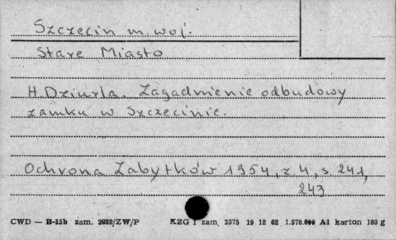 Szczecin m. woj.
Stare Miasto
H. Dziurla. Zagadnienie odbudowy
zamku w Szczecinie.
Ochrona Zabytków 1954, z 4, s. 241,
243
CWD — B-15b zam. 2622/ZW/P KZG 1 zam. 2375 19 12 62 1.578.000 A4 karton 180 g